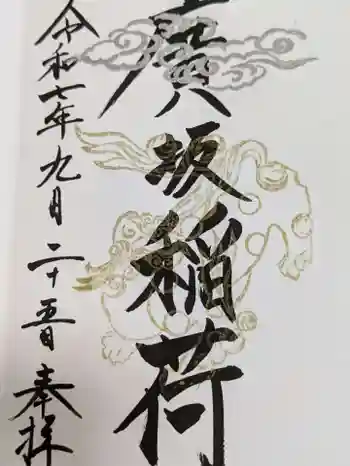 廣坂稲荷
令和七年九月二十五日奉拝